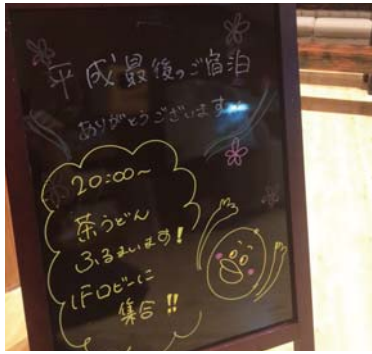 平成最後のご宿泊
ありがとうございます
20:00~
茶うどん
ふるまいます!
1Fロビーに
集合!!